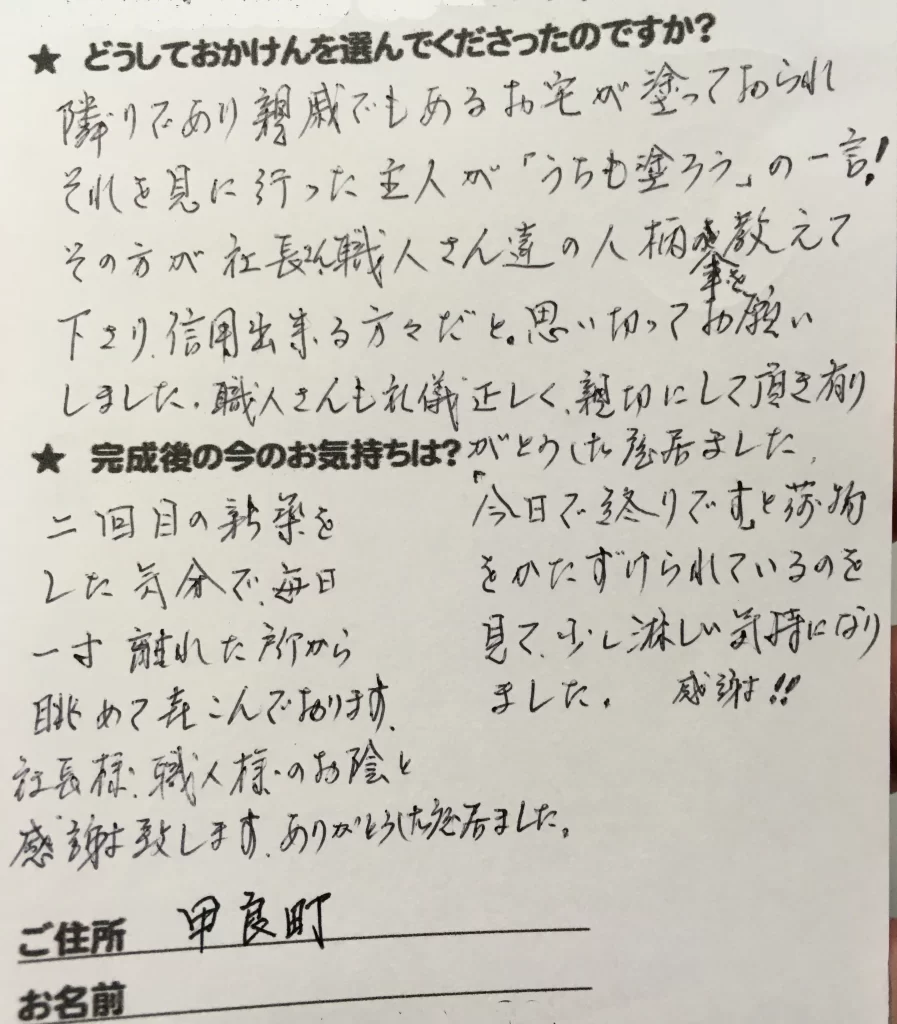 ★ どうしておかけんを選んでくださったのですか?
隣りであり親戚でもあるお宅が塗っておられ
それを見に行った主人が「うちも塗ろう」の一言!
その方が社長さん職人さん達の人柄を教えて
下さり、信用出来る方々だと。思い切ってお願い
しました。職人さんも礼儀正しく、親切にして頂き有り
がとうした座居ました。
「今日で終りです」と荷物
をかたずけられているのを
見て、少し淋しい気持になり
ました。 感謝!!
★ 完成後の今のお気持ちは?
二回目の新築を
した気分で、毎日
一寸離れた所から
眺めて喜こんでおります。
社長様、職人様のお陰と
感謝致します。ありがとうした座居ました。
ご住所 甲良町
お名前